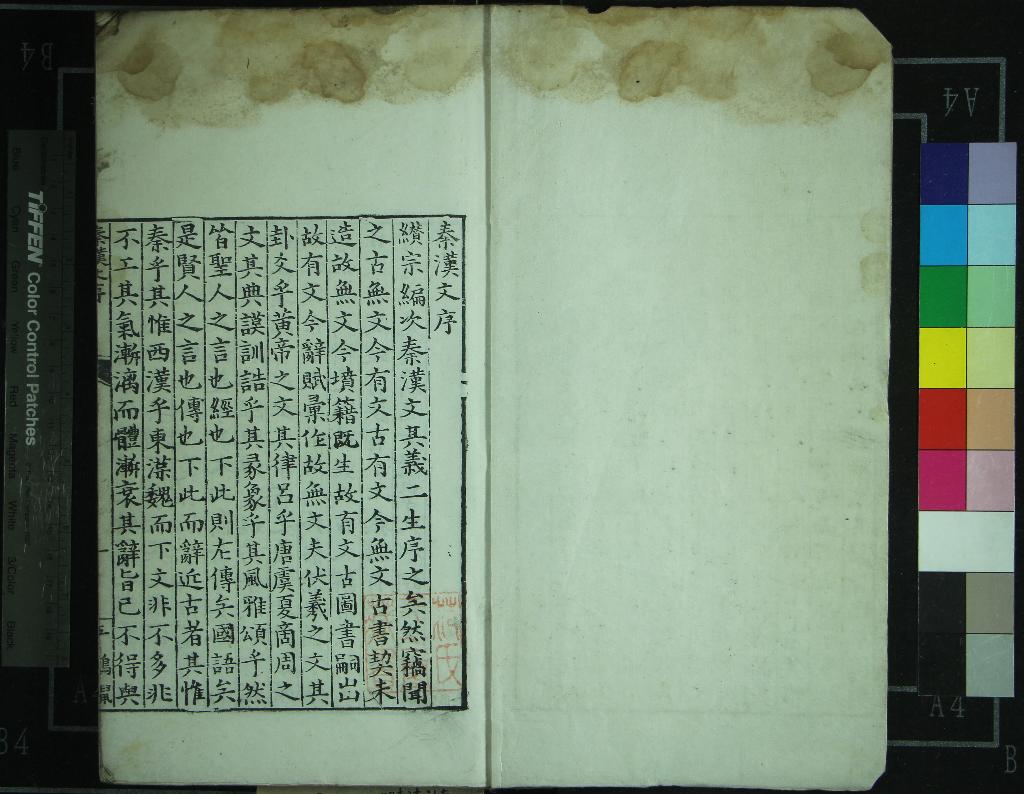 秦漢文序
纘宗編次秦漢文其義二生序之矣然竊聞
之古無文今有文古有文今無文古書契未
造故無文今墳籍既生故有文古圖書嗣出
故有文今辭賦彙作故無文夫伏羲之文其
卦爻乎黃帝之文其律呂乎唐虞夏商周之
文其典謨訓誥乎其彖象乎其風雅頌乎然
皆聖人之言也經也下此則左傳矣國語矣
是賢人之言也傳也下此而辭近古者其惟
秦乎其惟西漢乎東漢魏而下文非不多非
不工其氣漸漓而體漸衰其辭旨已不得與
秦漢文序
一
TIFFEN Color Control Patches
Blue
Cyan
Green
Yellow
Red
Magenta
White
3/Color
Black
B4
A4
A4
A4
B4
B